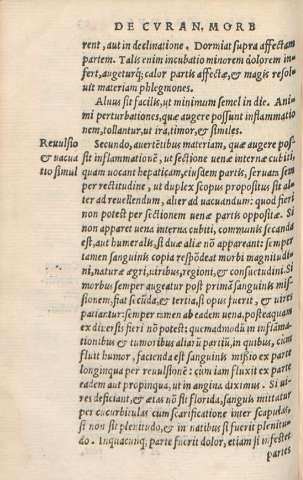 DE CVRAN. MORB
rent, aut in declinatione. Dormiat supra affectam
partem. Talis enim incubatio minorem dolorem in-
fert, augeturq; calor partis affectæ, & magis resol-
uit materiam phlegmones.
Aluus sit facilis, ut minimum semel in die. Ani
mi perturbationes, quæ augere possunt inflammatio
nem, tollantur, ut ira, timor, & similes.
Reuulsio
& uacua
tio simul
Secundo, auertētibus materiam, quæ augere pos-
sit inflammationē, ut sectione uenæ internæ cubiti,
quam uocant hepaticam, eiusdem partis, seruam sem
per rectitudine, ut duplex scopus propositus sit al-
ter ad reuellendum, alter ad uacuandum: quod fieri
non potest per sectionem uenæ partis oppositæ. Si
non apparet uena interna cubiti, communis secanda
est, aut humeralis, si duæ aliæ nō appareant: semper
tamen sanguinis copia respōdeat morbi magnitudi
ni, naturæ ægri, uiribus, regioni, & consuetudini. Si
morbus semper augeatur post primā sanguinis mis-
sionem, fiat secūda, & tertia, si opus fuerit, & uires
patiātur: semper tamen ab eadem uena, posteaquam
ex diuersis fieri nō potest: quemadmodū in inflāma-
tionibus & tumoribus aliarū partiū, in quibus, cum
fluit humor, facienda est sanguinis missio ex parte
longinqua per reuulsionē: cum iam fluxit ex parte
eadem aut propinqua, ut in angina diximus. Si ui-
res deficiant, & ætas nō sit florida, sanguis mittatur
per cucurbitulas cum scarificatione inter scapulas,
si non sit plenitudo, & in natibus si fuerit plenitu-
do. Inquacunq; parte fuerit dolor, etiam si infestet
partes